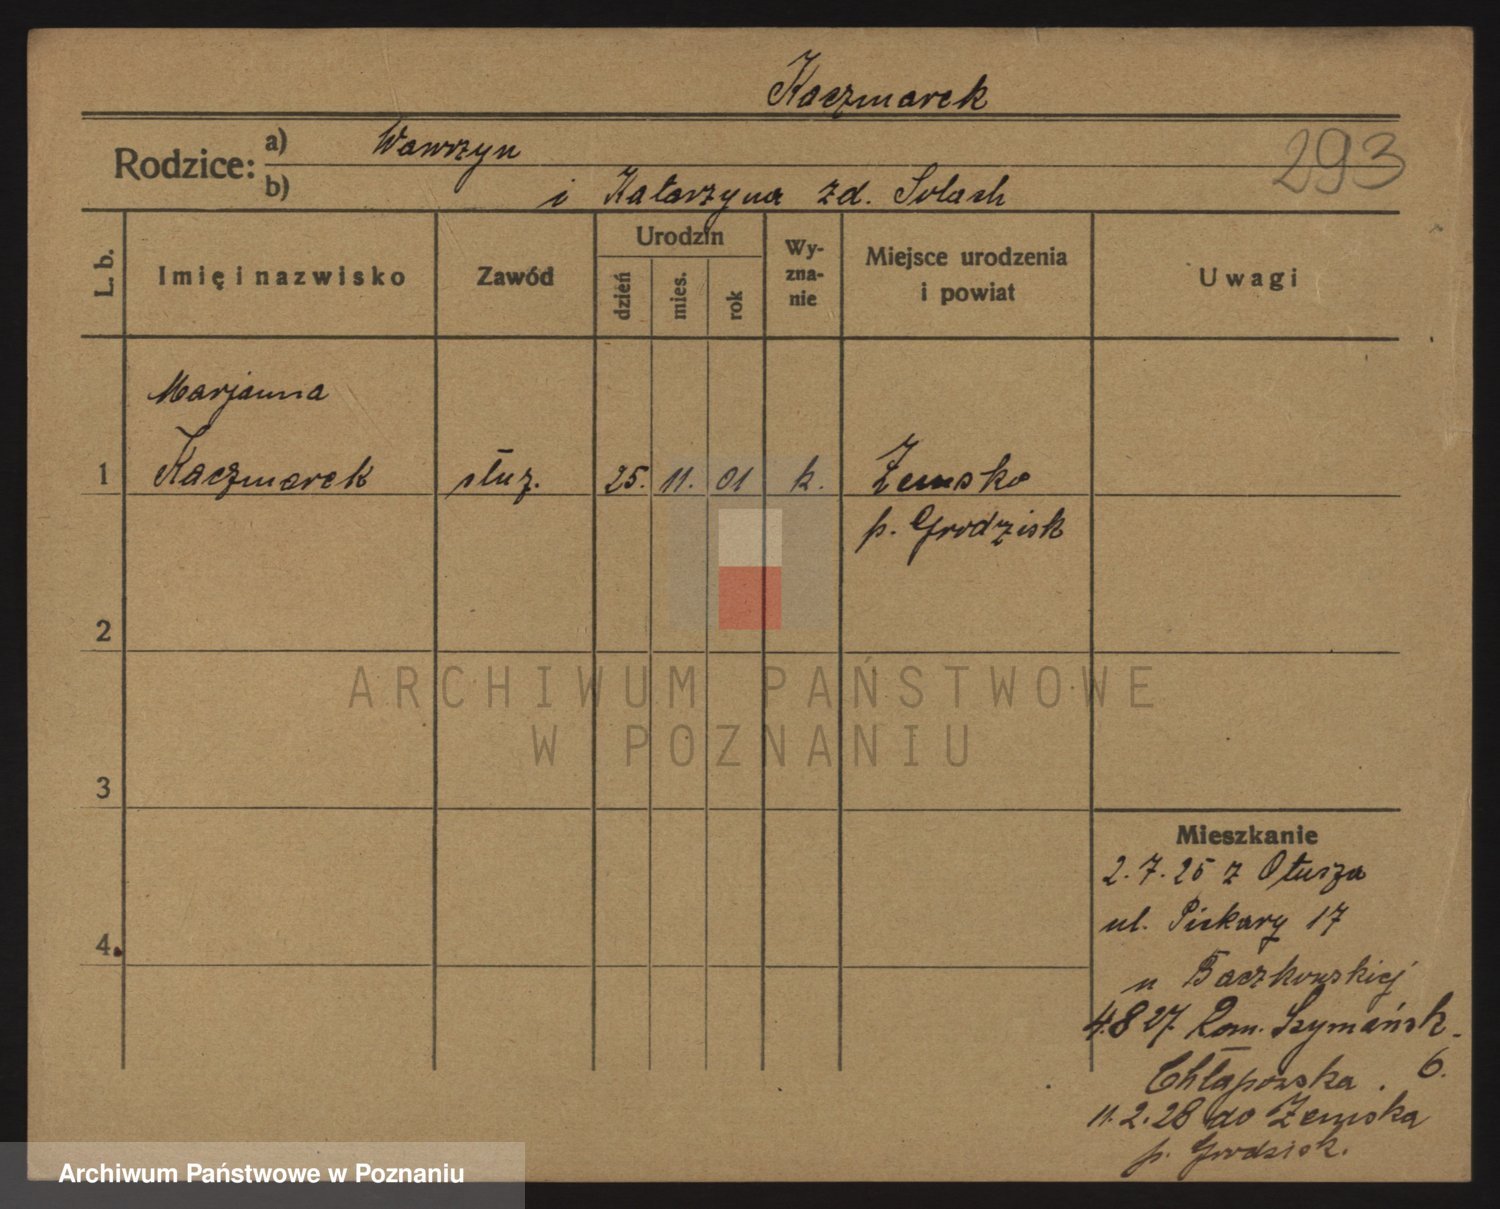 Kaczmarek
293
Rodzice: a) Wawrzyn
b) i Katarzyna zd. Solach
L. b.
Imię i nazwisko
Zawód
Urodzin
dzień
mies.
rok
Wy-
zna-
nie
Miejsce urodzenia
i powiat
Uwagi
Marjanna
1 Kaczmarek służ. 25. 11. 01 k. Zemsko
p. Grodzisk
2
ARCHIWUM PAŃSTWOWE
W POZNANIU
3
Mieszkanie
2.7.25 z Otusza
ul. Piekary 17
4.
u Baczkowskiej
4.8 27. Rom. Szymańsk.
Chłapowska. 6.
11.2.28 do Zemska
p. Grodzisk.
Archiwum Państwowe w Poznaniu